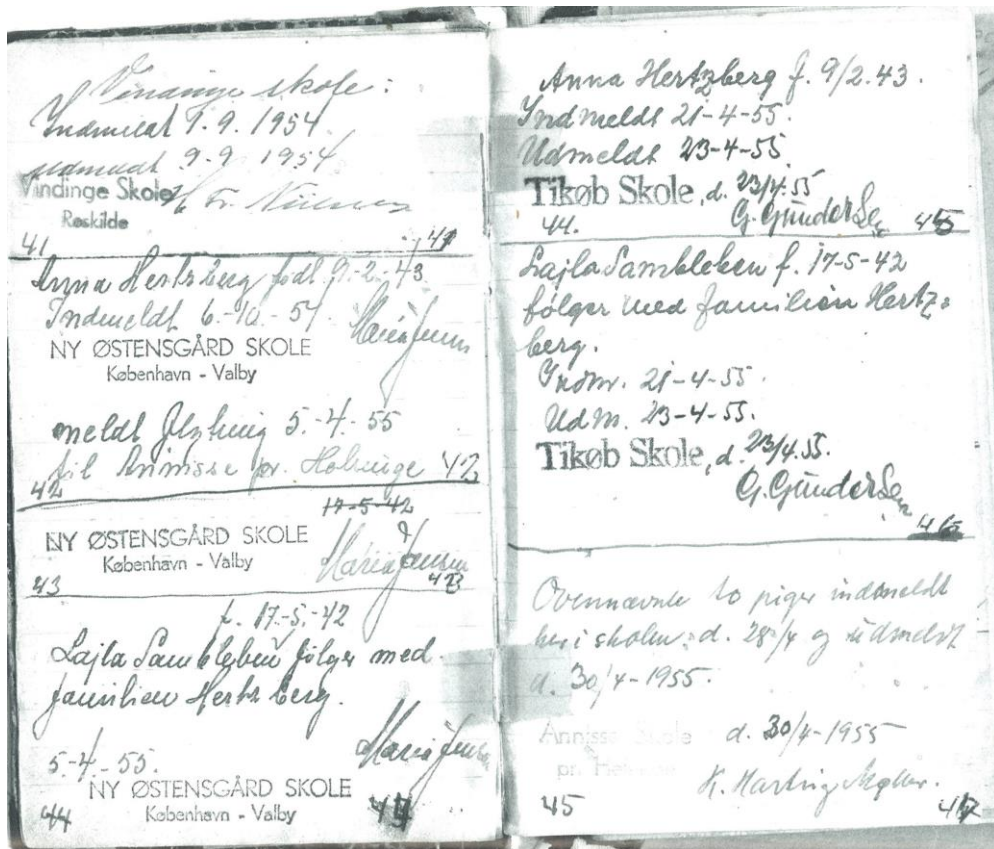 Vindinge skole:
Indmeldt 1. 9. 1954.
udmeldt 9. 9 1954.
Vindinge Skole
Roskilde
41 41
Anna Hertzberg født 9-2-43.
Indmeldt 6.-10.-54
Maria Jensen
NY ØSTENSGÅRD SKOLE
København - Valby
meldt flytning 5.-4.-55
til Annisse pr. Helsinge 42
42
17-5-42
NY ØSTENSGÅRD SKOLE
København - Valby
Maria Jensen
43 43
f. 17.-5.-42
Lajla Sambleben følger med
familien Hertzberg.
Maria Jensen
5.-4.-55.
NY ØSTENSGÅRD SKOLE
København - Valby
44
Anna Hertzberg f. 9/2.43.
Indmeldt 21-4-55.
Udmeldt 23-4-55.
Tikøb Skole, d. 23/4.55
G. Gundersen
44. 45
Lajla Sambleben f. 17-5-42
følger med familien Hertz=
berg.
Indm. 21-4-55.
Udm. 23-4-55.
Tikøb Skole, d. 23/4.55.
G. Gundersen
46
Ovennævnte to piger indmeldt
her i skolen d. 28/4 og udmeldt
d. 30/4-1955.
Annisse Skole d. 30/4-1955
pr. Helsinge
K. Hartvig Møller.
45 47